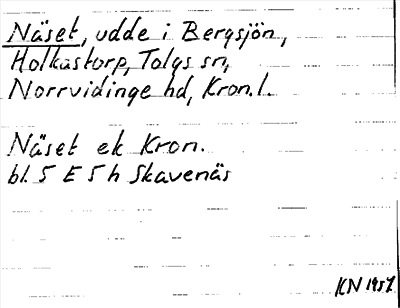 Näset, udde i Bergsjön,
Holkastorp, Tolgs sn,
Norrvidinge hd, Kron.l.
Näset ek Kron.
bl. 5 E 5 h Skavenäs
KN 1957